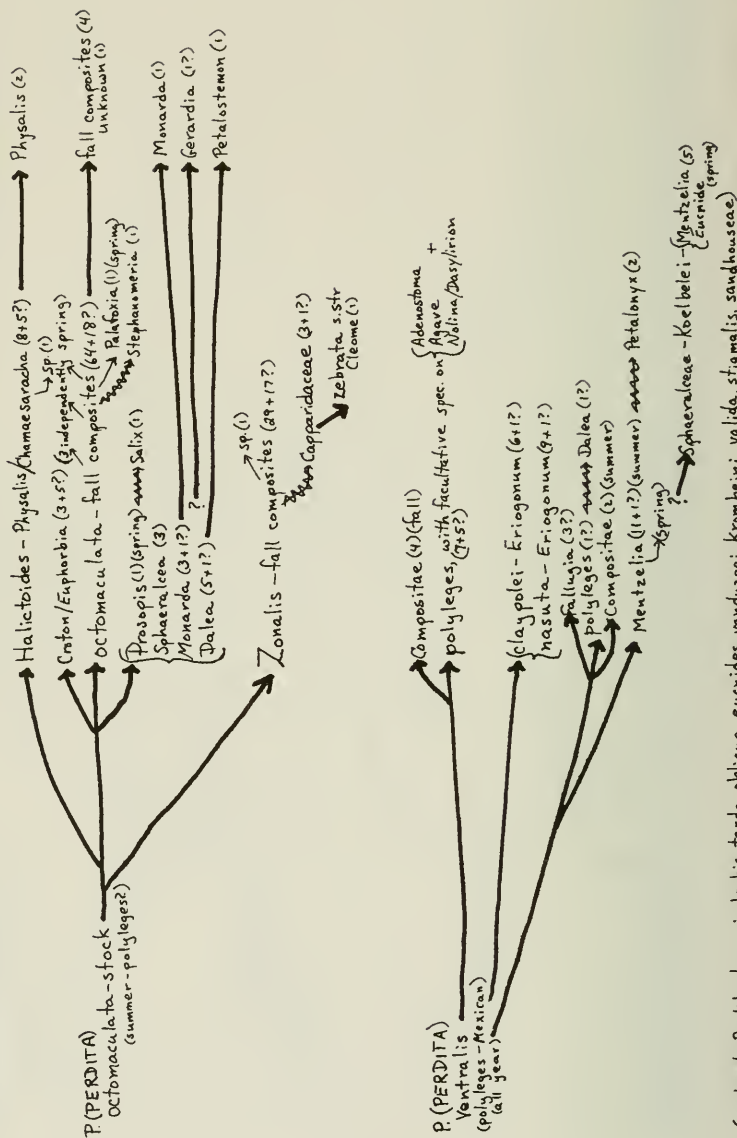 P. (PERDITA)
Octomaculata-stock
(summer-polyleges?)
Halictoides - Physalis/Chamaesaracha (8+5?)
Physalis (2)
sp. (1)
Croton/Euphorbia (3+5?) (3 independently spring)
Octomaculata-fall composites (64+18?)
fall composites (4)
unknown (1)
Palafoxia (1) (spring)
Stephanomeria (1)
Prosopis (1) (spring)
Salix (1)
Sphaeralcea (3)
Monarda (3+1?)
Monarda (1)
?
Gerardia (1?)
Dalea (5+1?)
Petalostemon (1)
Zonalis - fall composites (29+17?)
sp. (1)
Capparidaceae (3+1?)
Zebrata s.str
Cleome (1)
P. (PERDITA)
Ventralis
(polyleges-Mexican)
(all year)
Compositae (4) (fall)
polyleges, with facultative spec. on
(7+5?)
Adenostoma
Agave +
Nolina/Dasylirion
Claypolei - Eriogonum (6+1?)
hasuta - Eriogonum (9+1?)
Fallugia (3?)
polyleges (1?)
Dalea (1?)
Compositae (2) (summer)
Mentzelia (11+1?) (summer)
Petalonyx (2)
(spring)
?
Sphaeralceae - Koelbelei -
Mentzelia (5)
Eucnide
(spring)
tarda, obliqua, eucnides, moduzei, krombeini, valida, stigmalis, sandhouseae)